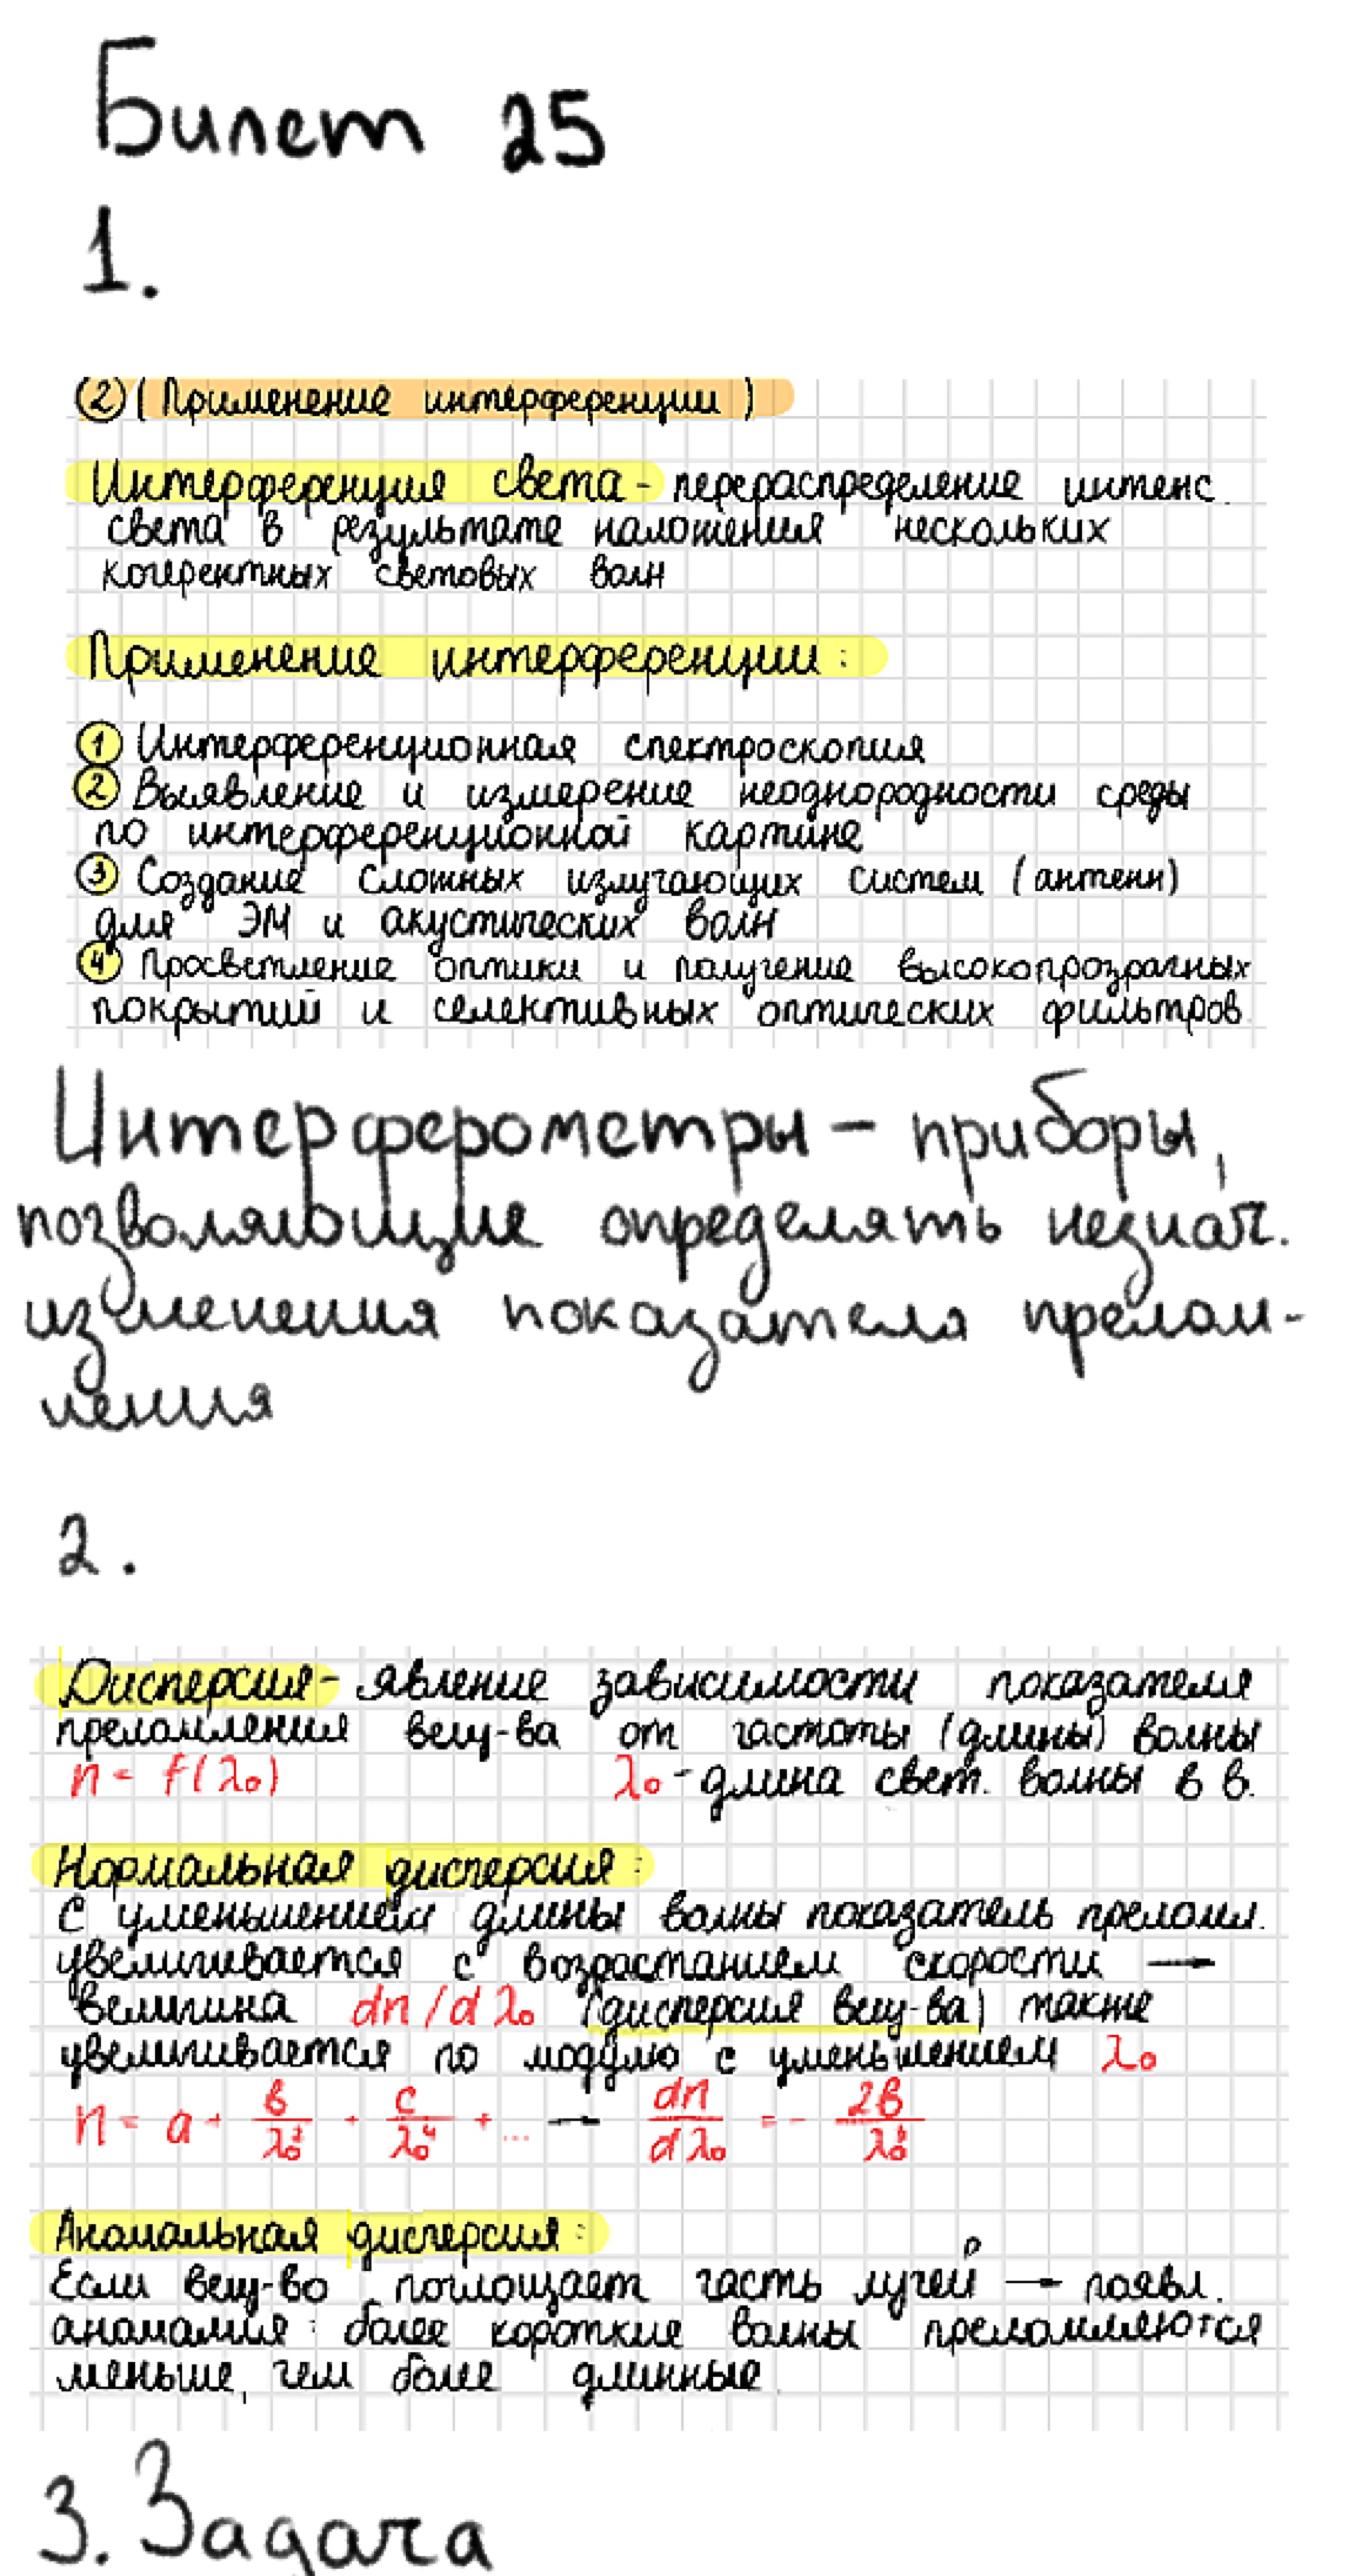 Билет 25
1.
② (Применение интерференции)
Интерференция света - перераспределение интенс.
света в результате наложения нескольких
когерентных световых волн
Применение интерференции:
① Интерференционная спектроскопия
② Выявление и измерение неоднородности среды
по интерференционной картине
③ Создание сложных излучающих систем (антенн)
для ЭМ и акустических волн
④ Просветление оптики и получение высокопрозрачных
покрытий и селективных оптических фильтров.
Интерферометры – приборы,
позволяющие определять незнач.
изменения показателя прелом-
ления
2.
Дисперсия - явление зависимости показателя
преломления вещ-ва от частоты (длины) волны
n = f(λ₀) λ₀ - длина свет. волны в в.
Нормальная дисперсия:
С уменьшением длины волны показатель преломл.
увеличивается с возрастанием скорости →
величина dn/dλ₀ (дисперсия вещ-ва) также
увеличивается по модулю с уменьшением λ₀
n = a + b/λ₀² + c/λ₀⁴ + ... → dn/dλ₀ = - 2b/λ₀³
Аномальная дисперсия:
Если вещ-во поглощает часть лучей → появл.
аномалия: более короткие волны преломляются
меньше, чем более длинные.
3. Задача